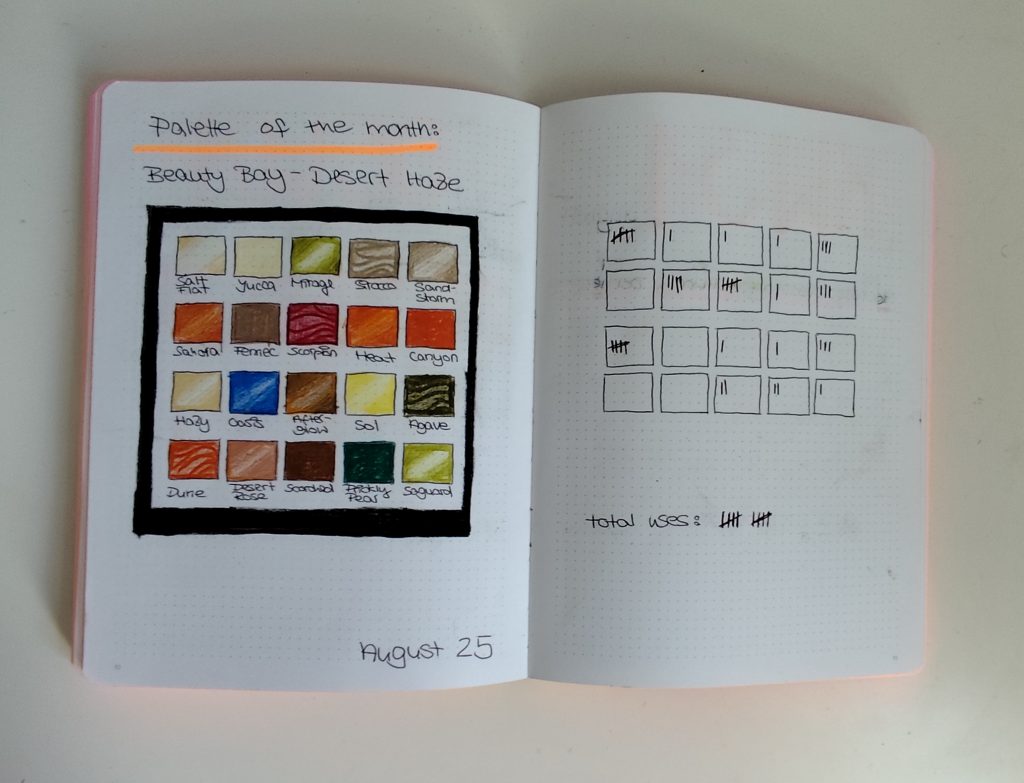 Palette of the month:
Beauty Bay - Desert Haze
Salt Flat
Yucca
Mirage
Stacca
Sand-storm
Sahara
Fennec
Scorpion
Heat
Canyon
Hazy
Oasis
After-glow
Sol
Agave
Dune
Desert Rose
Scorched
Prickly Pear
Saguaro
August 25
total uses: